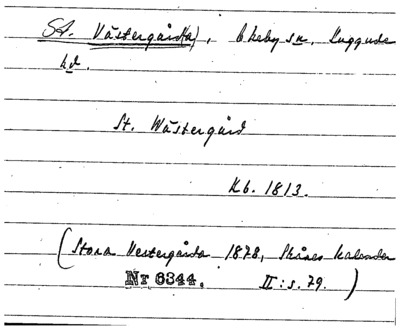 St. Västergård(a), Ekeby sn, Luggude
hd.
St. Wästergård
Kb. 1813.
(Stora Vestergårda 1878, Skånes kalender
Nr 6344. II: s. 79.)